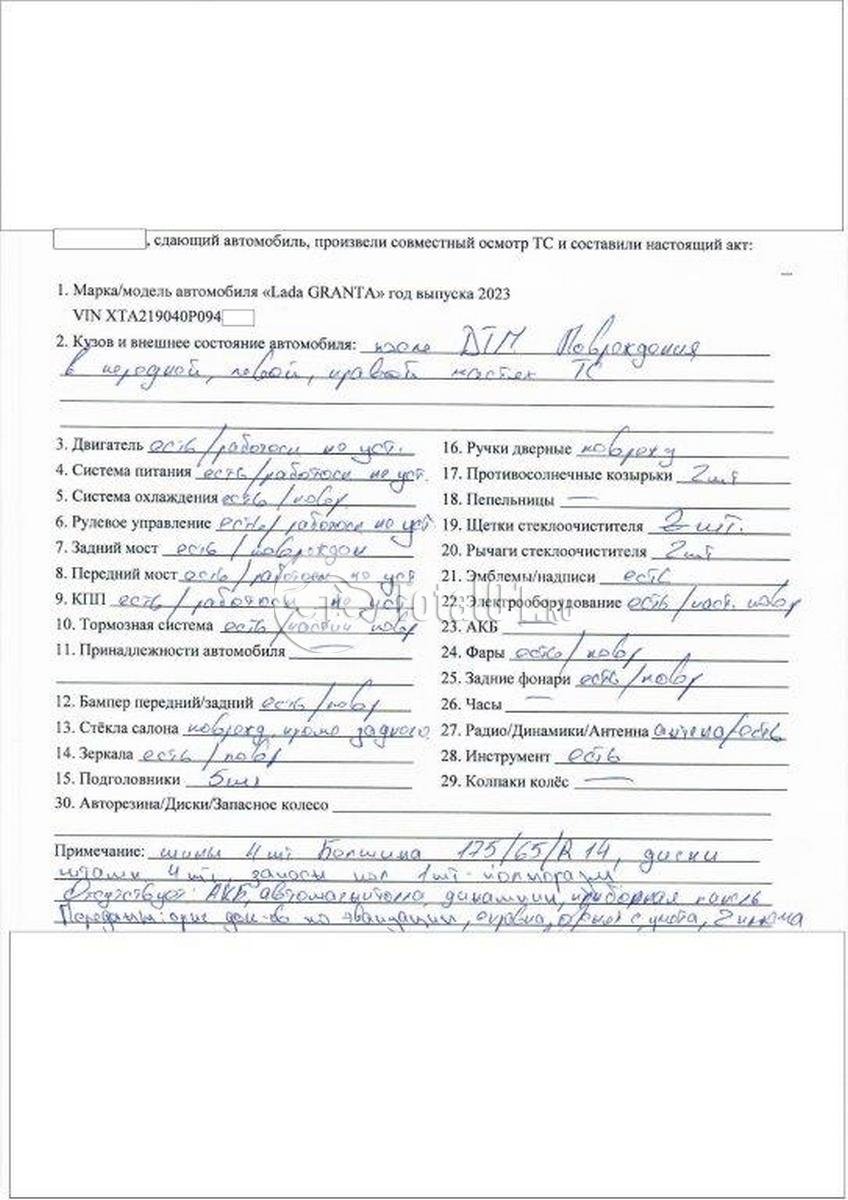 , сдающий автомобиль, произвели совместный осмотр ТС и составили настоящий акт:
1. Марка/модель автомобиля «Lada GRANTA» год выпуска 2023
VIN XTA219040P094
2. Кузов и внешнее состояние автомобиля: после ДТП Повреждения
в передной, левой, правой частях ТС
3. Двигатель есть/работосп не уст.
4. Система питания есть/работосп не уст.
5. Система охлаждения есть/повр
6. Рулевое управление есть/работосп не уст
7. Задний мост есть/поврежден
8. Передний мост есть/работосп не уст
9. КПП есть/работосп не уст
10. Тормозная система есть/частич повр
11. Принадлежности автомобиля
12. Бампер передний/задний есть/повр
13. Стёкла салона поврежд, кроме заднего
14. Зеркала есть/повр
15. Подголовники 5шт
16. Ручки дверные повреж
17. Противосолнечные козырьки 2шт
18. Пепельницы —
19. Щетки стеклоочистителя 2 шт.
20. Рычаги стеклоочистителя 2шт
21. Эмблемы/надписи есть
22. Электрооборудование есть/част. повр
23. АКБ —
24. Фары есть/повр
25. Задние фонари есть/повр
26. Часы —
27. Радио/Динамики/Антенна антена/есть
28. Инструмент есть
29. Колпаки колёс —
30. Авторезина/Диски/Запасное колесо
Примечание: шины 4 шт 175/65/R14, диски
штамп 4 шт, 1шт
Отсутствует: АКБ, автомагнитома, динамики, приборная панель
Переданы: ориг док-ов по эвакуации, справка, с учета, 2 ключа
Total01.ru